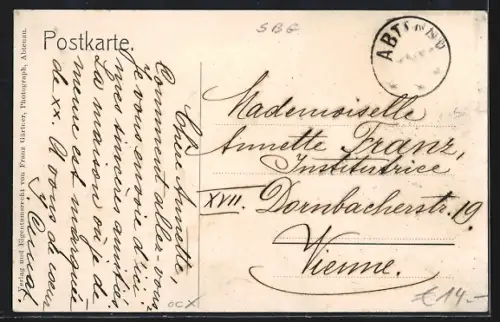 Postkarte.
SBG
ABTENAU
Chère Annette,
Comment allez-vous
Je vous envoie d'ici
mes sincères amitiés,
La maison où je de-
meure est marquée
de xx. A vous de coeur
Mademoiselle
Annette Franz,
Institutrice
XVII. Dornbacherstr. 19.
Vienne.
Verlag und Eigentumsrecht von Franz Gärtner, Photograph, Abtenau.
ocx
€14.-